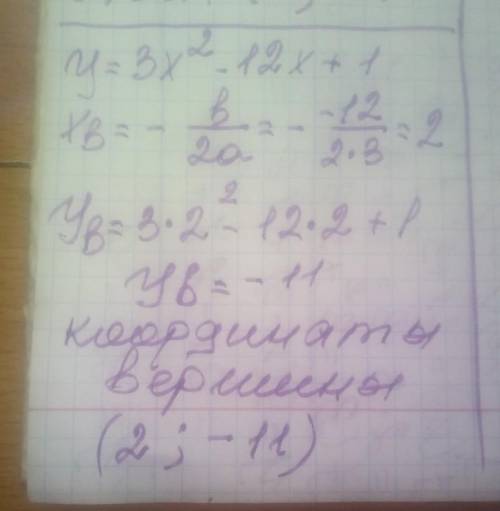 y = 3x² - 12x + 1
xв = - b/2a = - -12/2·3 = 2
yв = 3·2² - 12·2 + 1
yв = -11
координаты
вершины
(2 ; -11)